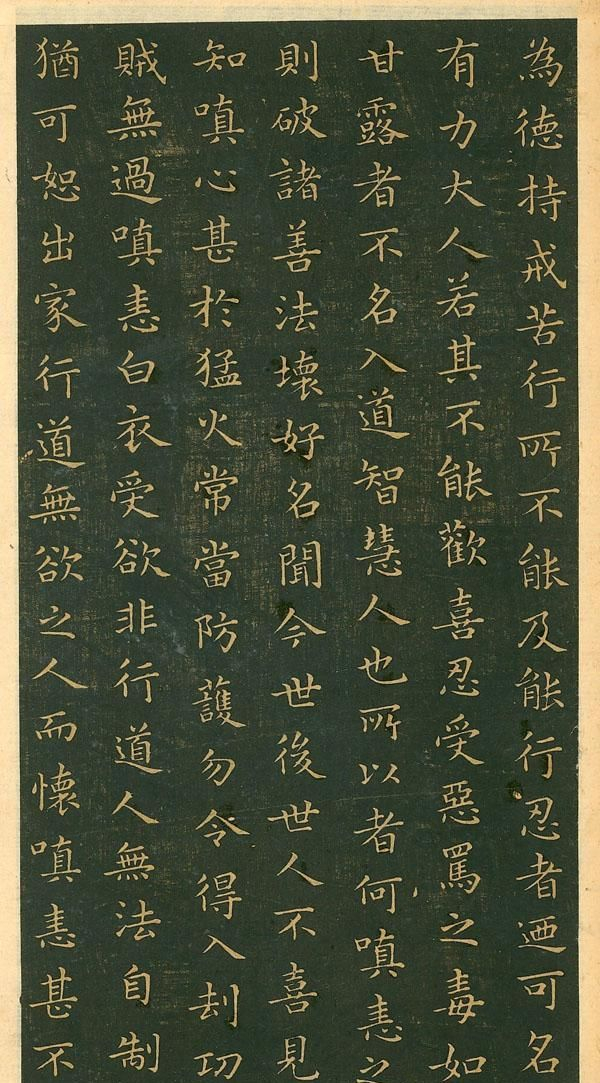 為德持戒苦行所不能及能行忍者迺可名
有力大人若其不能歡喜忍受惡罵之毒如
甘露者不名入道智慧人也所以者何嗔恚之
則破諸善法壞好名聞今世後世人不喜見
知嗔心甚於猛火常當防護勿令得入刧功
賊無過嗔恚白衣受欲非行道人無法自制
猶可恕出家行道無欲之人而懷嗔恚甚不